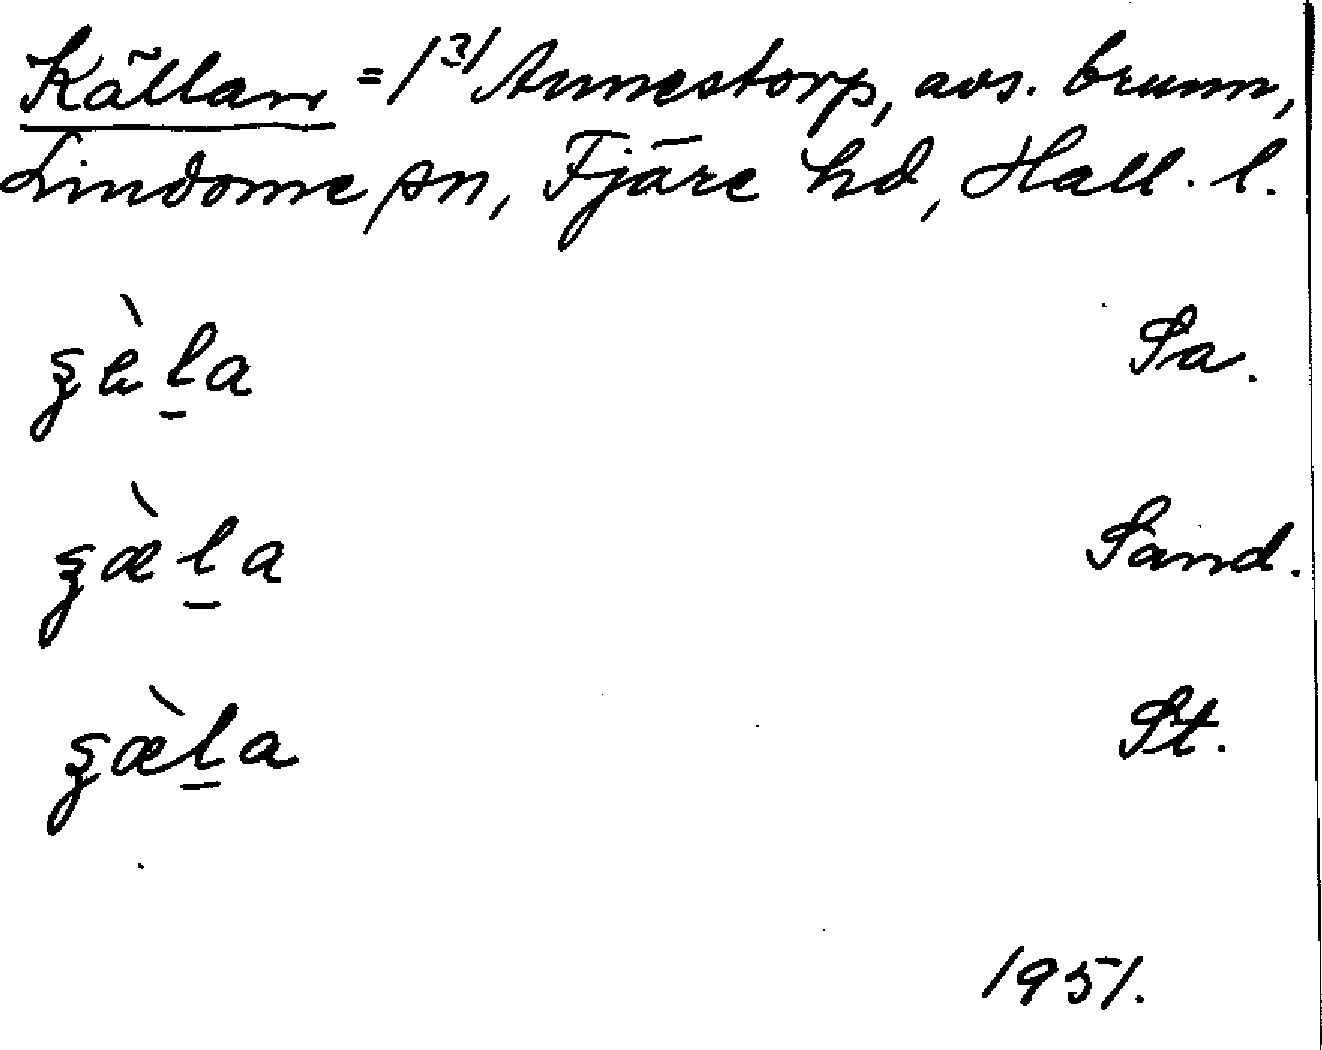 Källan = 1³¹ Annestorp, avs. brunn,
Lindome sn, Fjäre hd, Hall. l.
Sa.
Sand.
St.
1951.